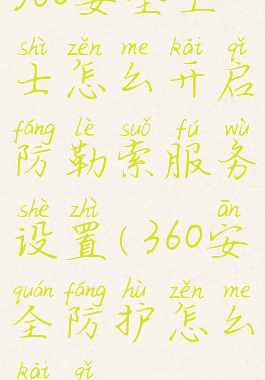 shì zěn me kāi qǐ
士怎么开启
fáng lè suǒ fú wù
防勒索服务
shè zhì ān
设置(360安
quán fáng hù zěn me
全防护怎么
kāi qǐ